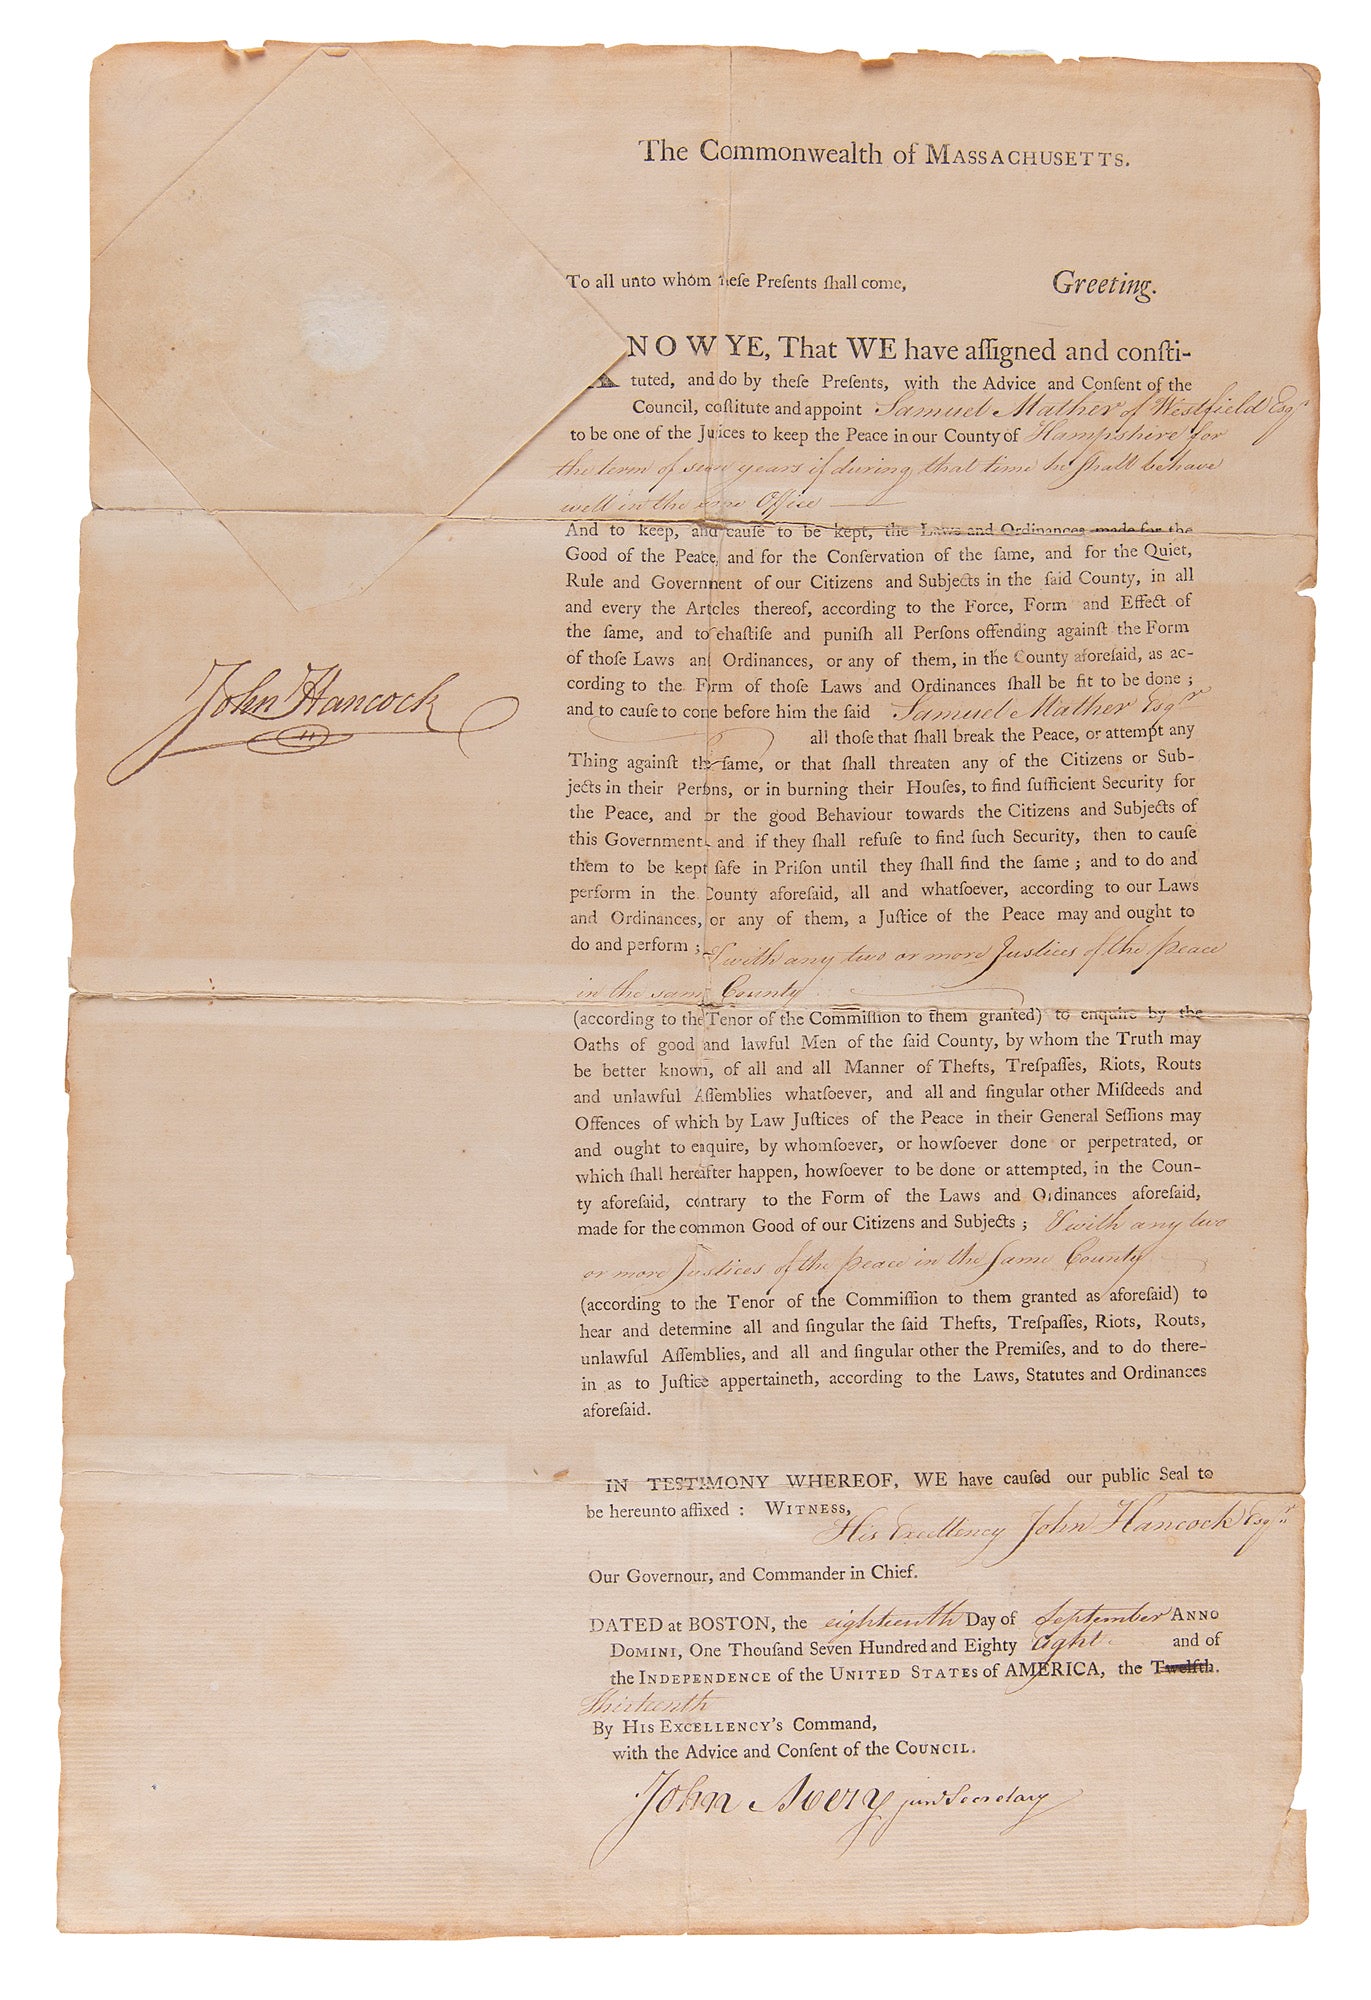 The Commonwealth of MASSACHUSETTS.
To all unto whom heſe Preſents ſhall come, Greeting.
NOW YE, That WE have aſſigned and conſti-
tuted, and do by theſe Preſents, with the Advice and Conſent of the
Council, coſtitute and appoint Samuel Mather of Weſtfield Esqr
to be one of the Juices to keep the Peace in our County of Hampshire for
the term of years if during that time he ſhall behave
well in the Office
And to keep, and cauſe to be kept, the Laws and Ordinances made for the
Good of the Peace, and for the Conſervation of the ſame, and for the Quiet,
Rule and Government of our Citizens and Subjects in the ſaid County, in all
and every the Artcles thereof, according to the Force, Form and Effect of
the ſame, and to chaſtiſe and puniſh all Perſons offending againſt the Form
of thoſe Laws and Ordinances, or any of them, in the County aforeſaid, as ac-
cording to the Form of thoſe Laws and Ordinances ſhall be fit to be done ;
and to cauſe to come before him the ſaid Samuel Mather Esqr
all thoſe that ſhall break the Peace, or attempt any
Thing againſt the ſame, or that ſhall threaten any of the Citizens or Sub-
jects in their Perſons, or in burning their Houſes, to find ſufficient Security for
the Peace, and or the good Behaviour towards the Citizens and Subjects of
this Government and if they ſhall refuſe to find ſuch Security, then to cauſe
them to be kept ſafe in Priſon until they ſhall find the ſame ; and to do and
perform in the County aforeſaid, all and whatſoever, according to our Laws
and Ordinances, or any of them, a Juſtice of the Peace may and ought to
do and perform ; & with any two or more Justices of the peace
in the same County
(according to the Tenor of the Commiſſion to them granted) to enquire by the
Oaths of good and lawful Men of the ſaid County, by whom the Truth may
be better known, of all and all Manner of Thefts, Treſpaſſes, Riots, Routs
and unlawful Aſſemblies whatſoever, and all and ſingular other Miſdeeds and
Offences of which by Law Juſtices of the Peace in their General Seſſions may
and ought to enquire, by whomſoever, or howſoever done or perpetrated, or
which ſhall hereafter happen, howſoever to be done or attempted, in the Coun-
ty aforeſaid, contrary to the Form of the Laws and Ordinances aforeſaid,
made for the common Good of our Citizens and Subjects ; & with any two
or more Justices of the peace in the ſame County
(according to the Tenor of the Commiſſion to them granted as aforeſaid) to
hear and determine all and ſingular the ſaid Thefts, Treſpaſſes, Riots, Routs,
unlawful Aſſemblies, and all and ſingular other the Premiſes, and to do there-
in as to Juſtice appertaineth, according to the Laws, Statutes and Ordinances
aforeſaid.
IN TESTIMONY WHEREOF, WE have cauſed our public Seal to
be hereunto affixed : WITNESS,
His Excellency John Hancock Esqr
Our Governour, and Commander in Chief.
DATED at BOSTON, the eighteenth Day of September ANNO
DOMINI, One Thouſand Seven Hundred and Eighty eight and of
the INDEPENDENCE of the UNITED STATES of AMERICA, the Twelfth.
thirteenth
By HIS EXCELLENCY'S Command,
with the Advice and Conſent of the COUNCIL.
John Avery junr Secretary
John Hancock